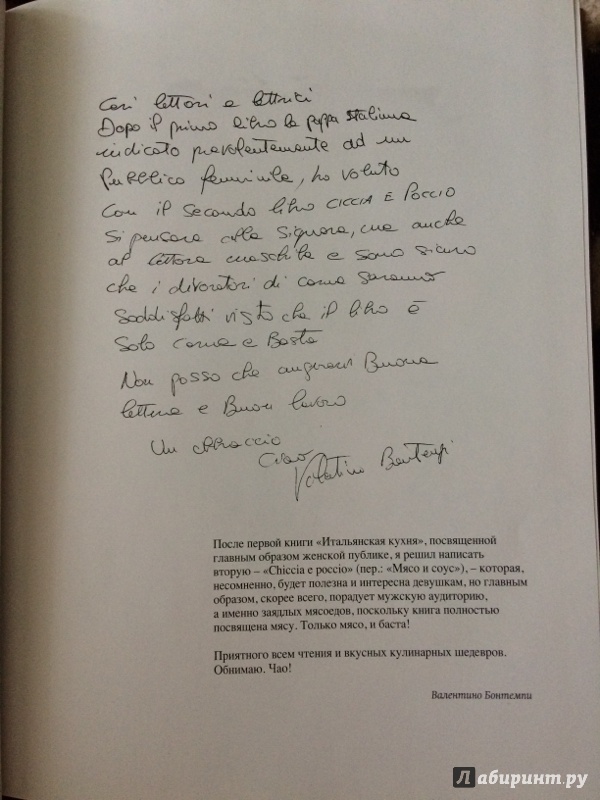 Cari lettori e lettrici
Dopo il primo libro la pappa italiana
indicato prevalentemente ad un
pubblico femminile, ho voluto
con il secondo libro CICCIA E POCCIO
si pensare alla signora, ma anche
al lettore maschile e sono sicuro
che i divoratori di carne saranno
soddisfatti visto che il libro è
solo carne e Basta
Non posso che augurarvi Buona
lettura e Buon lavoro
Un abbraccio
Ciao
Valentino Bontempi
После первой книги «Итальянская кухня», посвященной
главным образом женской публике, я решил написать
вторую – «Chiccia e poccio» (пер.: «Мясо и соус»), – которая,
несомненно, будет полезна и интересна девушкам, но главным
образом, скорее всего, порадует мужскую аудиторию,
а именно заядлых мясоедов, поскольку книга полностью
посвящена мясу. Только мясо, и баста!
Приятного всем чтения и вкусных кулинарных шедевров.
Обнимаю. Чао!
Валентино Бонтемпи
Лабиринт.ру